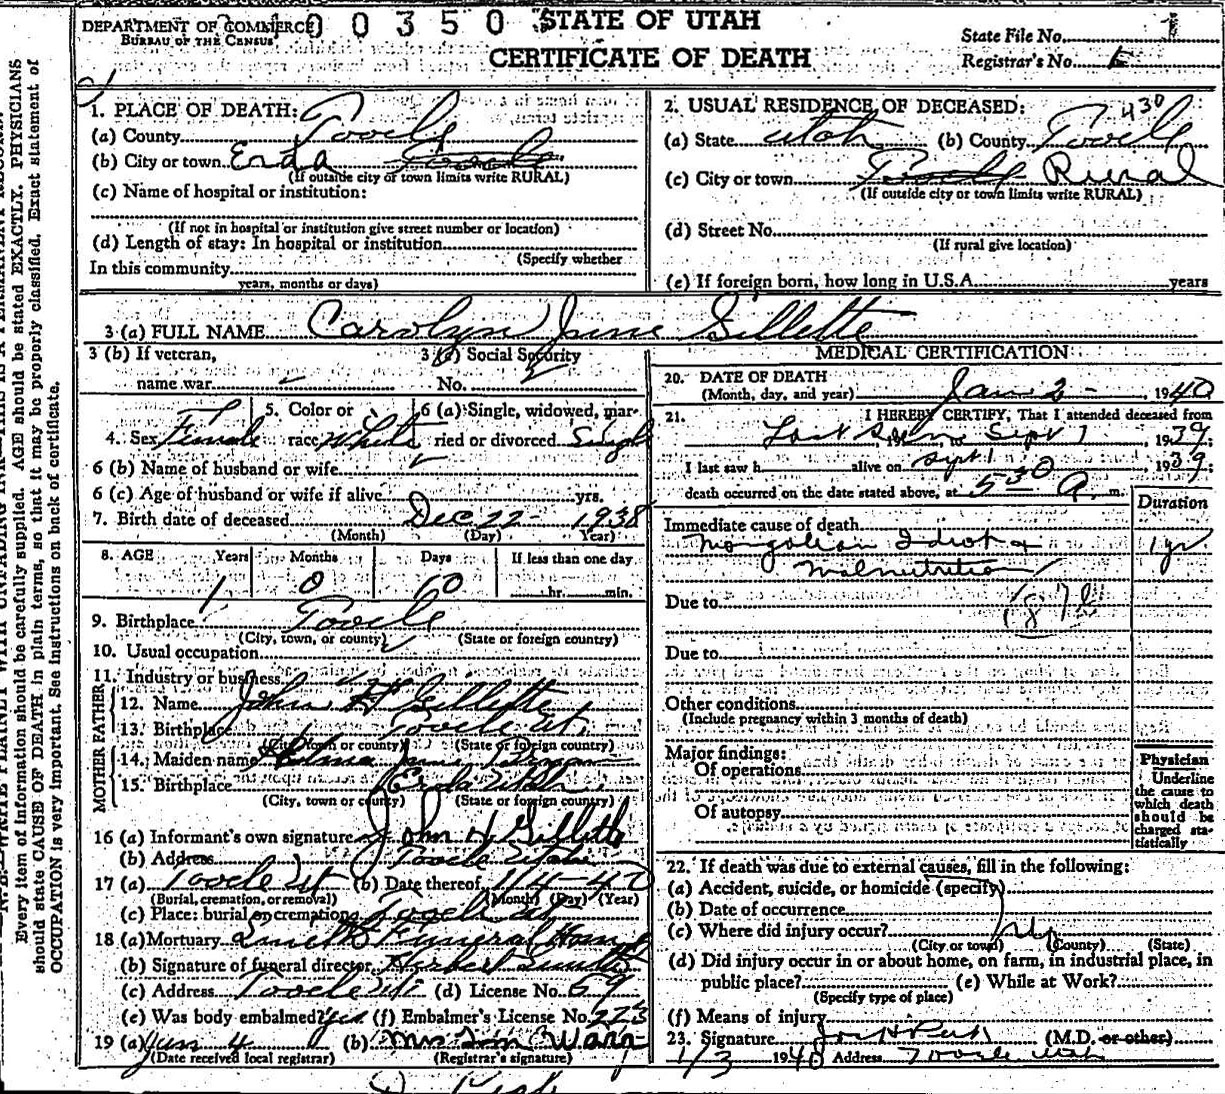 DEPARTMENT OF COMMERCE
BUREAU OF THE CENSUS
0 0 3 5 0
STATE OF UTAH
CERTIFICATE OF DEATH
State File No. 1
Registrar's No.
1. PLACE OF DEATH:
(a) County Tooele
(b) City or town Erda Tooele
(If outside city or town limits write RURAL)
(c) Name of hospital or institution:
(If not in hospital or institution give street number or location)
(d) Length of stay: In hospital or institution
(Specify whether
In this community
years, months or days)
2. USUAL RESIDENCE OF DECEASED:
430
(a) State Utah (b) County Tooele
(c) City or town Tooele Rural
(If outside city or town limits write RURAL)
(d) Street No.
(If rural give location)
(e) If foreign born, how long in U.S.A. years
3 (a) FULL NAME Carolyn June Gillette
3 (b) If veteran,
name war
3 (c) Social Security
No.
4. Sex Female
5. Color or
race White
6 (a) Single, widowed, mar-
ried or divorced Single
6 (b) Name of husband or wife
6 (c) Age of husband or wife if alive yrs.
7. Birth date of deceased Dec 22 - 1938
(Month) (Day) Year)
8. AGE Years Months Days If less than one day
1 0 10 hr. min.
9. Birthplace Tooele
(City, town, or county) (State or foreign country)
10. Usual occupation
11. Industry or business
FATHER
12. Name John H Gillette
13. Birthplace Tooele Ut.
(City, town or county) (State or foreign country)
MOTHER
14. Maiden name June
15. Birthplace Erda Utah
(City, town or county) (State or foreign country)
16 (a) Informant's own signature John H. Gillette
(b) Address Tooele Utah
17 (a) Tooele Ut (b) Date thereof 1/4-40
(Burial, cremation, or removal) (Month) (Day) (Year)
(c) Place: burial or cremation Tooele Ut
18 (a) Mortuary Funeral Home
(b) Signature of funeral director Herbert
(c) Address Tooele Ut (d) License No. 69
(e) Was body embalmed? Yes (f) Embalmer's License No. 223
19 (a) Jan 4 (b) Mrs
(Date received local registrar) (Registrar's signature)
MEDICAL CERTIFICATION
20. DATE OF DEATH
(Month, day, and year) Jan 2 - 1940
21. I HEREBY CERTIFY, That I attended deceased from
Last seen Sept 1 1939;
I last saw h alive on Sept 1 1939;
death occurred on the date stated above, at 5 30 A. m.
Duration
Immediate cause of death
Mongolian Idiot & 1 yr
Malnutrition
Due to
Due to
Other conditions
(Include pregnancy within 3 months of death)
Major findings:
Of operations
Of autopsy
Physician
Underline
the cause to
which death
should be
charged sta-
tistically
22. If death was due to external causes, fill in the following:
(a) Accident, suicide, or homicide (specify)
(b) Date of occurrence
(c) Where did injury occur? No
(City or town) (County) (State)
(d) Did injury occur in or about home, on farm, in industrial place, in
public place? (e) While at Work?
(Specify type of place)
(f) Means of injury
23. Signature (M.D. or other)
1/3 1940 Address Tooele Utah
Every item of information should be carefully supplied. AGE should be stated EXACTLY. PHYSICIANS
should state CAUSE OF DEATH in plain terms, so that it may be properly classified. Exact statement of
OCCUPATION is very important. See instructions on back of certificate.